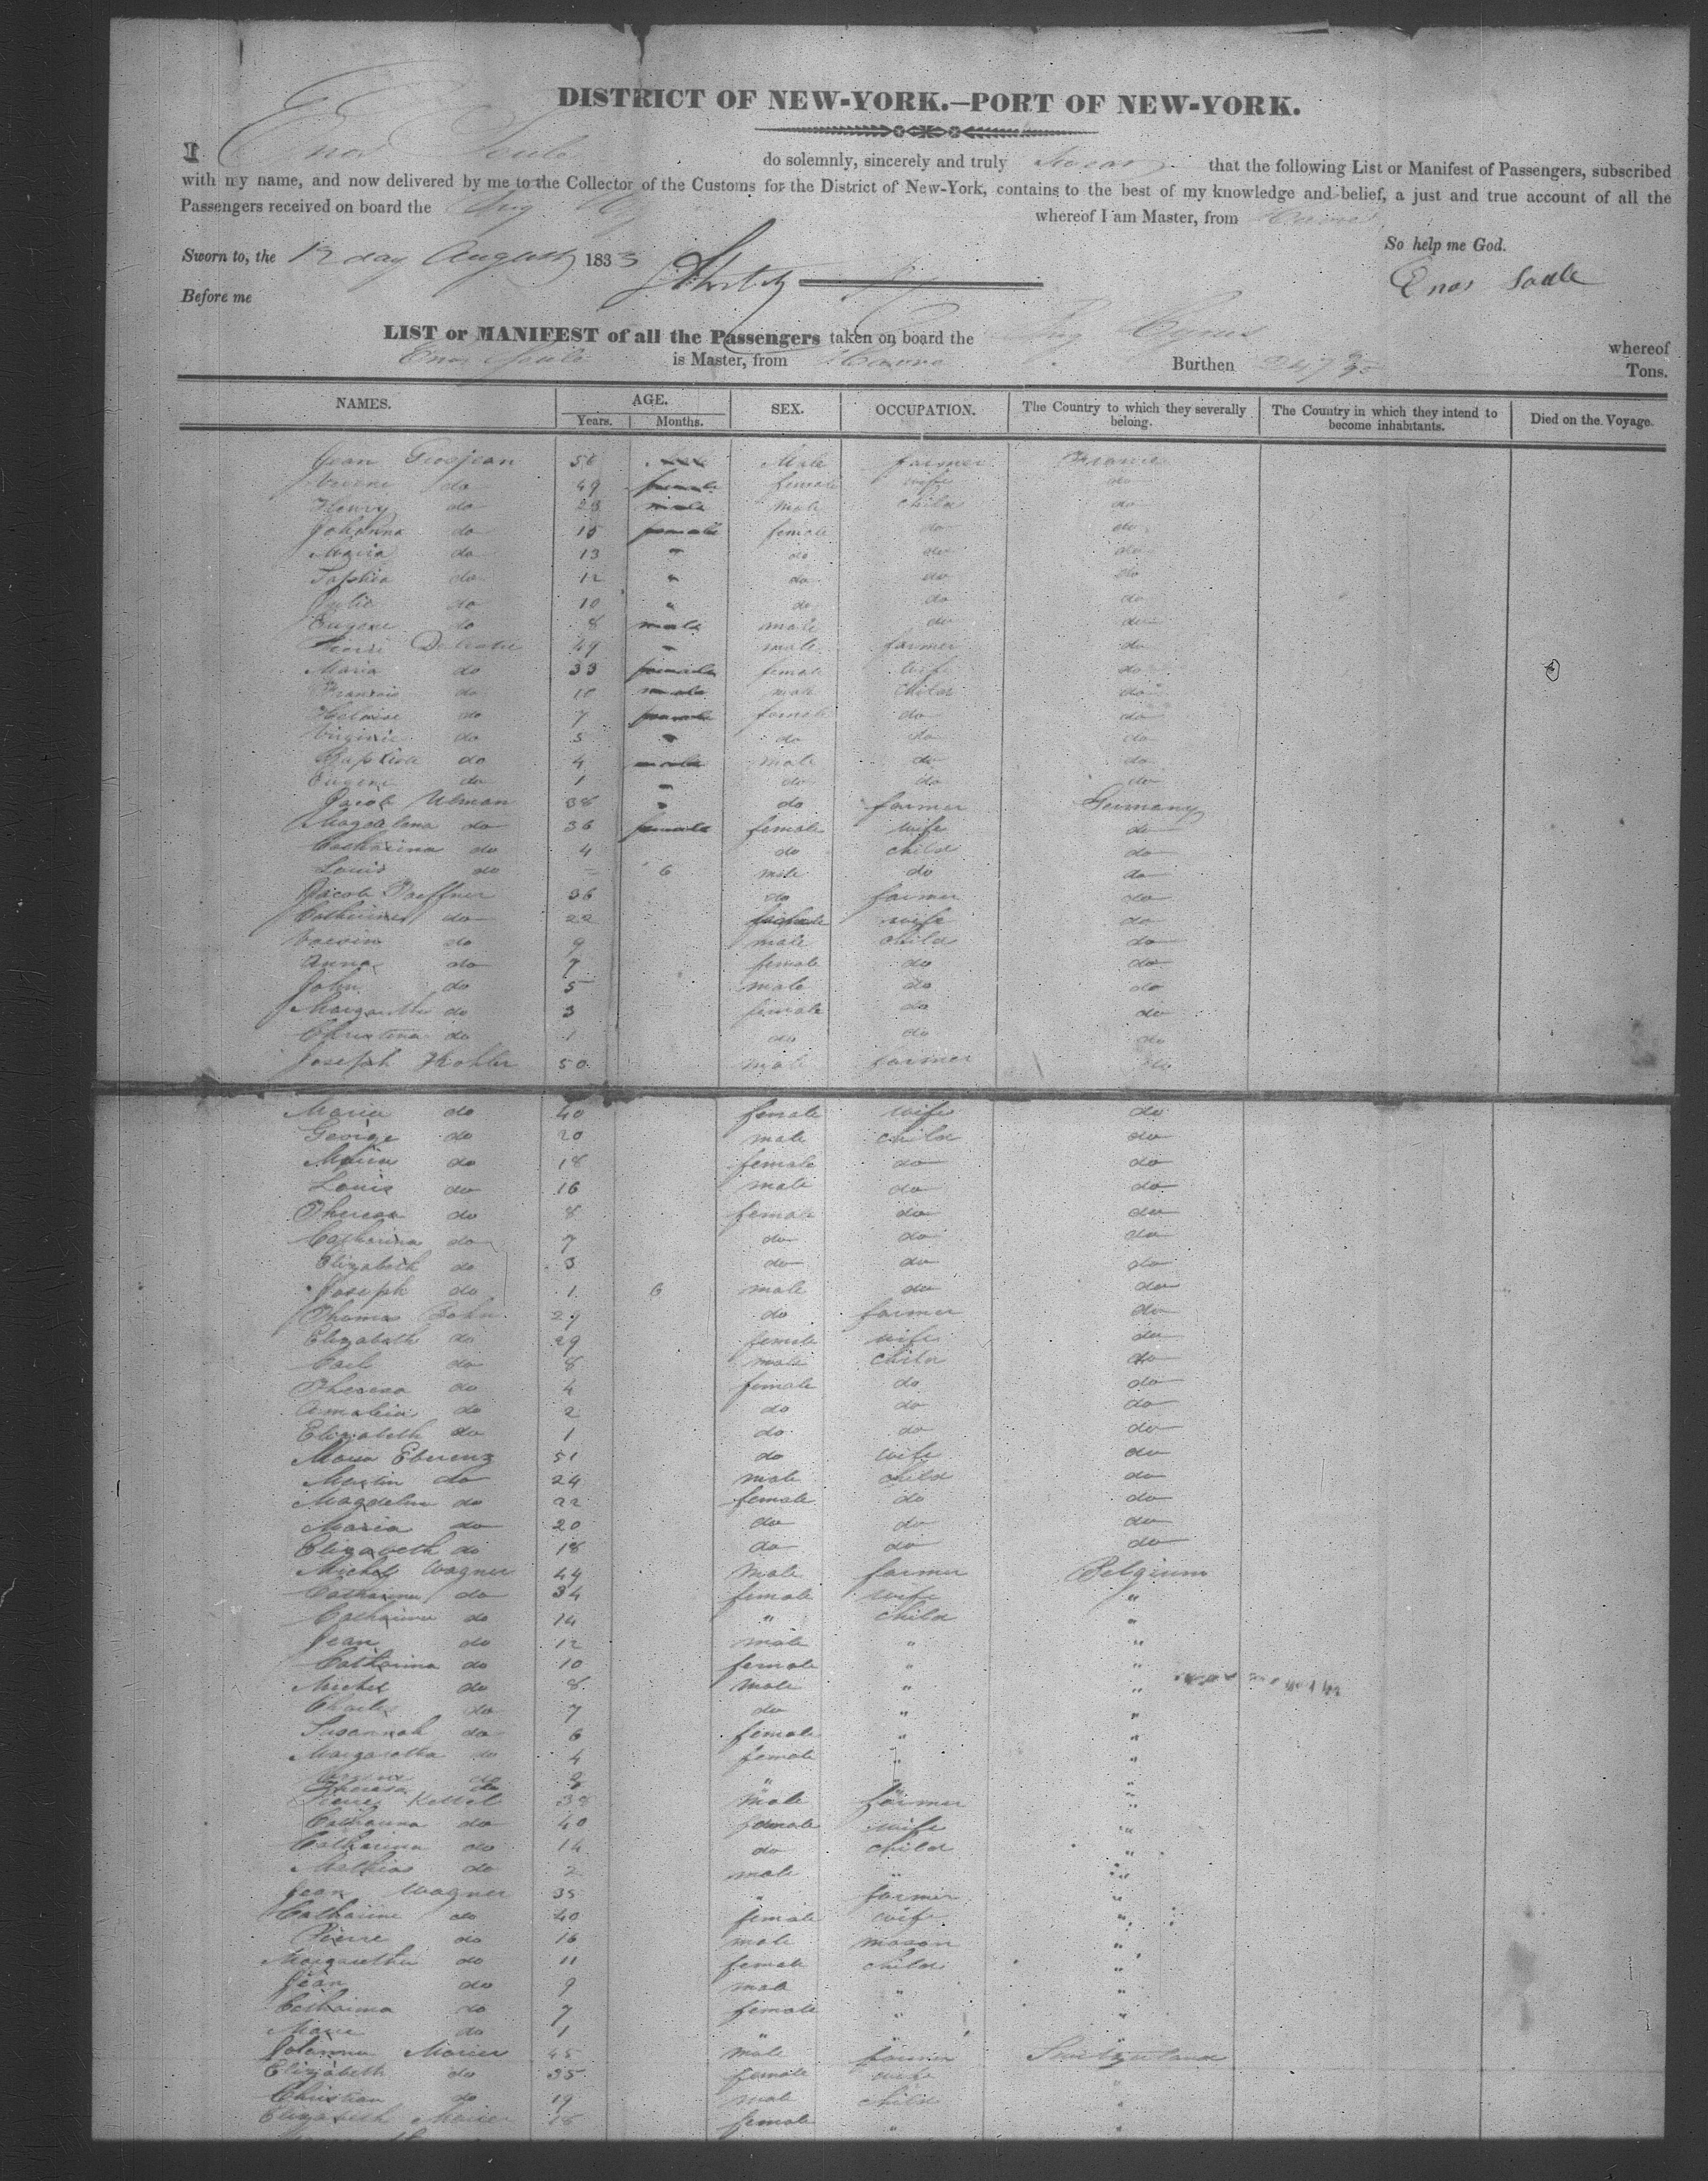 DISTRICT OF NEW-YORK.—PORT OF NEW-YORK.
I Enos Soule do solemnly, sincerely and truly Swear that the following List or Manifest of Passengers, subscribed
with my name, and now delivered by me to the Collector of the Customs for the District of New-York, contains to the best of my knowledge and belief, a just and true account of all the
Passengers received on board the whereof I am Master, from
So help me God.
Sworn to, the 12 day August 1833
Enos Soule
Before me
LIST or MANIFEST of all the Passengers taken on board the whereof
Enos Soule is Master, from Havre Burthen Tons.
NAMES. AGE. SEX. OCCUPATION. The Country to which they severally belong. The Country in which they intend to become inhabitants. Died on the Voyage.
Years. Months.
Jean Grosjean 56 Male farmer France
do 49 female female wife do
Henry do 23 male male child do
Johanna do 15 female female do do
Maria do 13 " do do do
do 12 " do do do
Julie do 10 " do do do
Eugene do 8 male male do do
49 " male farmer do
Maria do 33 female female wife do
Francois do 10 male male child do
Heloise do 7 female female do do
Virginie do 5 " do do do
Baptiste do 4 male male do do
Eugene do 1 " do do do
Jacob Ulman 38 " do farmer Germany
Magdalena do 36 female female wife do
Catharina do 4 do child do
Louis do 6 male do do
Jacob 36 do farmer do
Catharina do 22 female wife do
do 9 male child do
Anna do 7 female do do
John do 5 male do do
Margaretha do 3 female do do
Christina do 1 do do do
Joseph Kohler 50 male farmer do
Maria do 40 female wife do
George do 20 male child do
do 18 female do do
Louis do 16 male do do
Theresa do 8 female do do
Catharina do 7 do do do
Elizabeth do 3 do do do
Joseph do 1 6 male do do
Thomas 29 do farmer do
Elizabeth do 29 female wife do
Carl do 8 male child do
Theresa do 4 female do do
Amalia do 2 do do do
Elizabeth do 1 do do do
Maria Eberenz 51 do wife do
Martin do 24 male child do
Magdalena do 22 female do do
Maria do 20 do do do
Elizabeth do 18 do do do
Michel Wagner 44 Male farmer Belgium
Catharina do 34 female wife "
Catharina do 14 " child "
Jean do 12 male " "
Catharina do 10 female " "
Michel do 8 male " "
Charles do 7 do " "
Susannah do 6 female " "
Margaretha do 4 female " "
do 2 " " "
Theresa do
Pierre Kettel 38 Male farmer "
Catharina do 40 female wife "
Catharina do 14 do child "
Mathias do 2 male " "
Jean Wagner 35 " farmer "
Catharine do 40 female wife "
Pierre do 16 male mason "
Margaretha do 11 female child "
Jean do 9 male " "
Catharina do 7 female " "
Marie do 1 " " "
45 male farmer Switzerland
Elizabeth do 35 female wife "
Christian do 19 male child "
Elizabeth 18 female " "